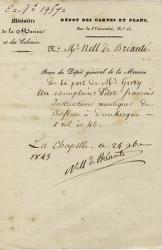 Ministère
de la Marine
et des Colonies.
DÉPOT DES CARTES ET PLANS,
Rue de l'Université, N.º 13.
Mr Nell de Bréauté
Reçu du Dépôt général de la Marine
de la part de Mr Givry
Un exemplaire Pilote français
Instructions nautiques de
Barfleur à Dunkerque
1 vol in 4º.
La Chapelle, ce 24
1843
Nell de Bréauté